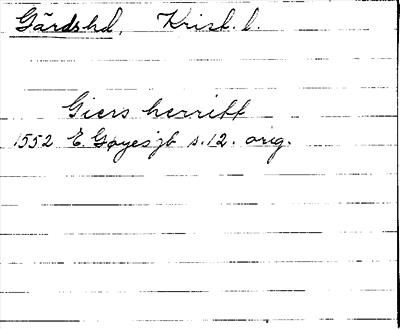 Gärdshd, Krist. l.
Giers herritt
1552 E. Gøyes jb s. 12. orig.